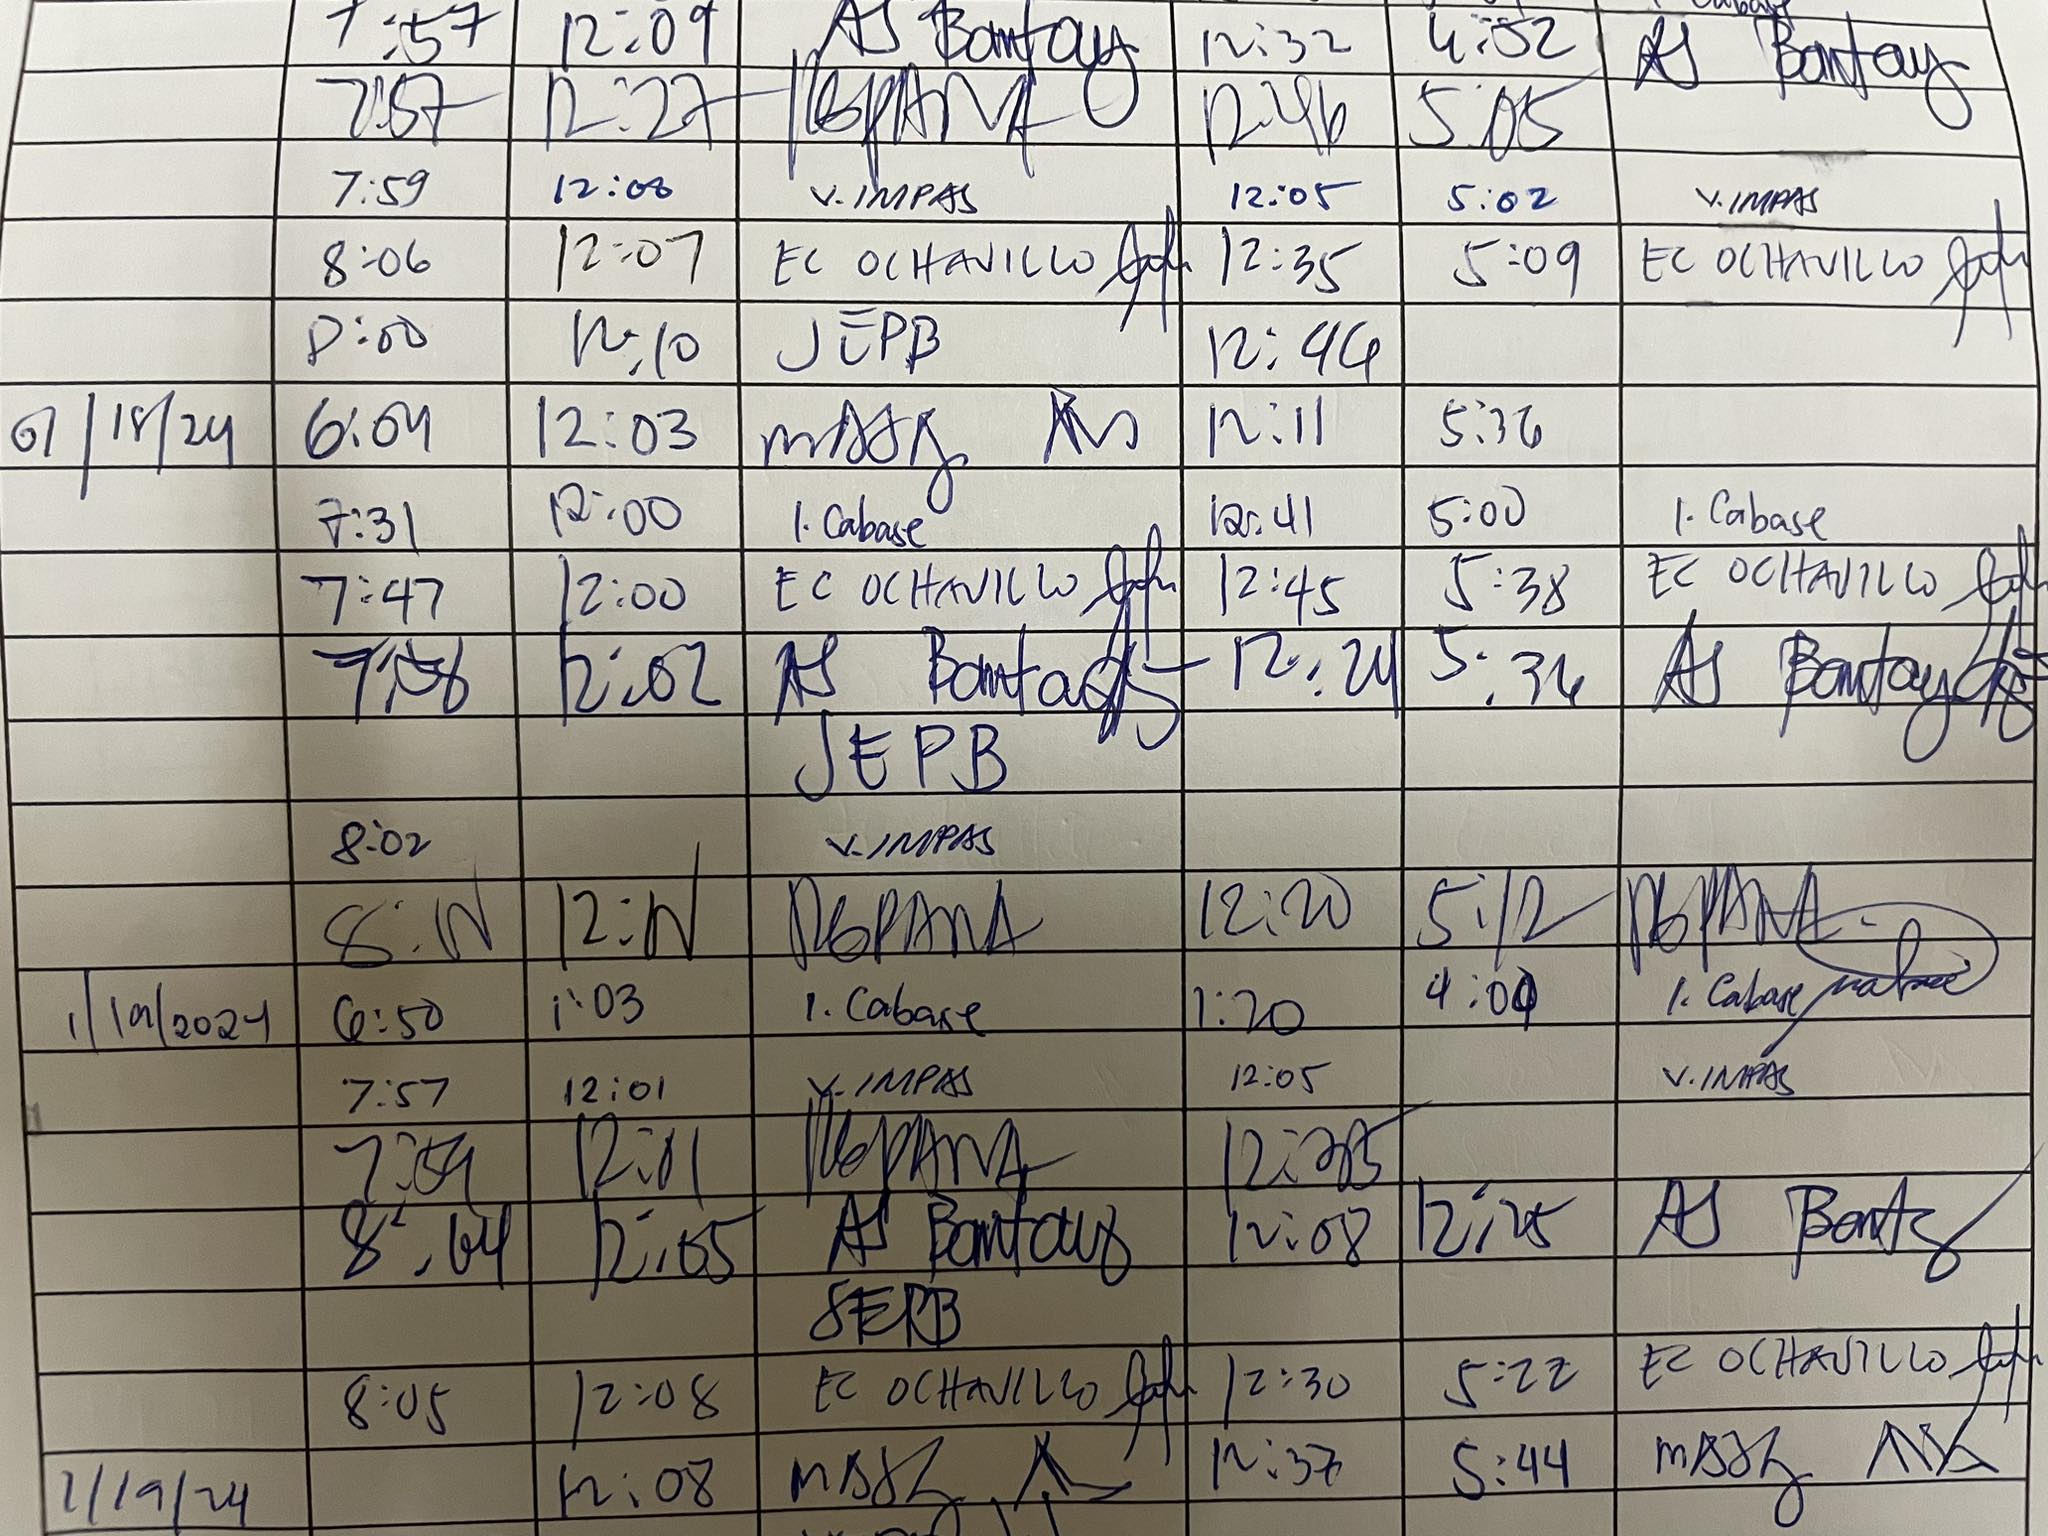 7:57 12:09 AS Bantay 12:32 4:52 AS Bantay
7:57 12:27 12:46 5:05
7:59 12:00 V. IMPAS 12:05 5:02 V. IMPAS
8:06 12:07 EC OCHAVILLO 12:35 5:09 EC OCHAVILLO
8:00 12:10 JEPB 12:44
01/18/24 6:04 12:03 12:11 5:36
7:31 12:00 1. Cabase 12:41 5:00 1. Cabase
7:47 12:00 EC OCHAVILLO 12:45 5:38 EC OCHAVILLO
7:58 12:02 AS Bantay 12:24 5:36 AS Bantay
JEPB
8:02 V. IMPAS
12:20 5:12
1/19/2024 6:50 1:03 1. Cabase 1:20 4:00 1. Cabase
7:57 12:01 V. IMPAS 12:05 V. IMPAS
7:59 12:11
8:04 12:05 AS Bantay 12:08 12:25 AS
8:05 12:08 EC OCHAVILLO 12:30 5:22 EC OCHAVILLO
1/19/24 12:08 12:37 5:44